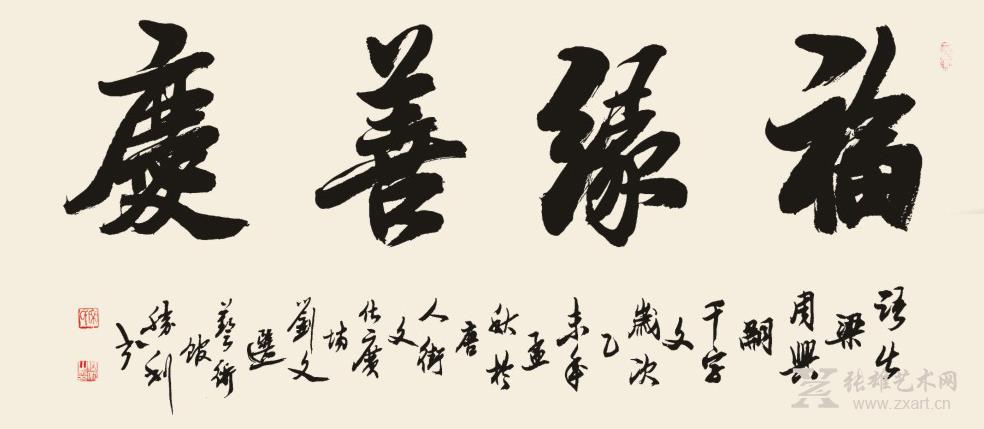 福緣善慶
語出
梁
周興
嗣
千字
文
歲次
乙
未年
孟
秋於
唐
人街
文
化廣
場
劉文
選
藝術
館
勝利
书
张雄艺术网
www.zxart.cn